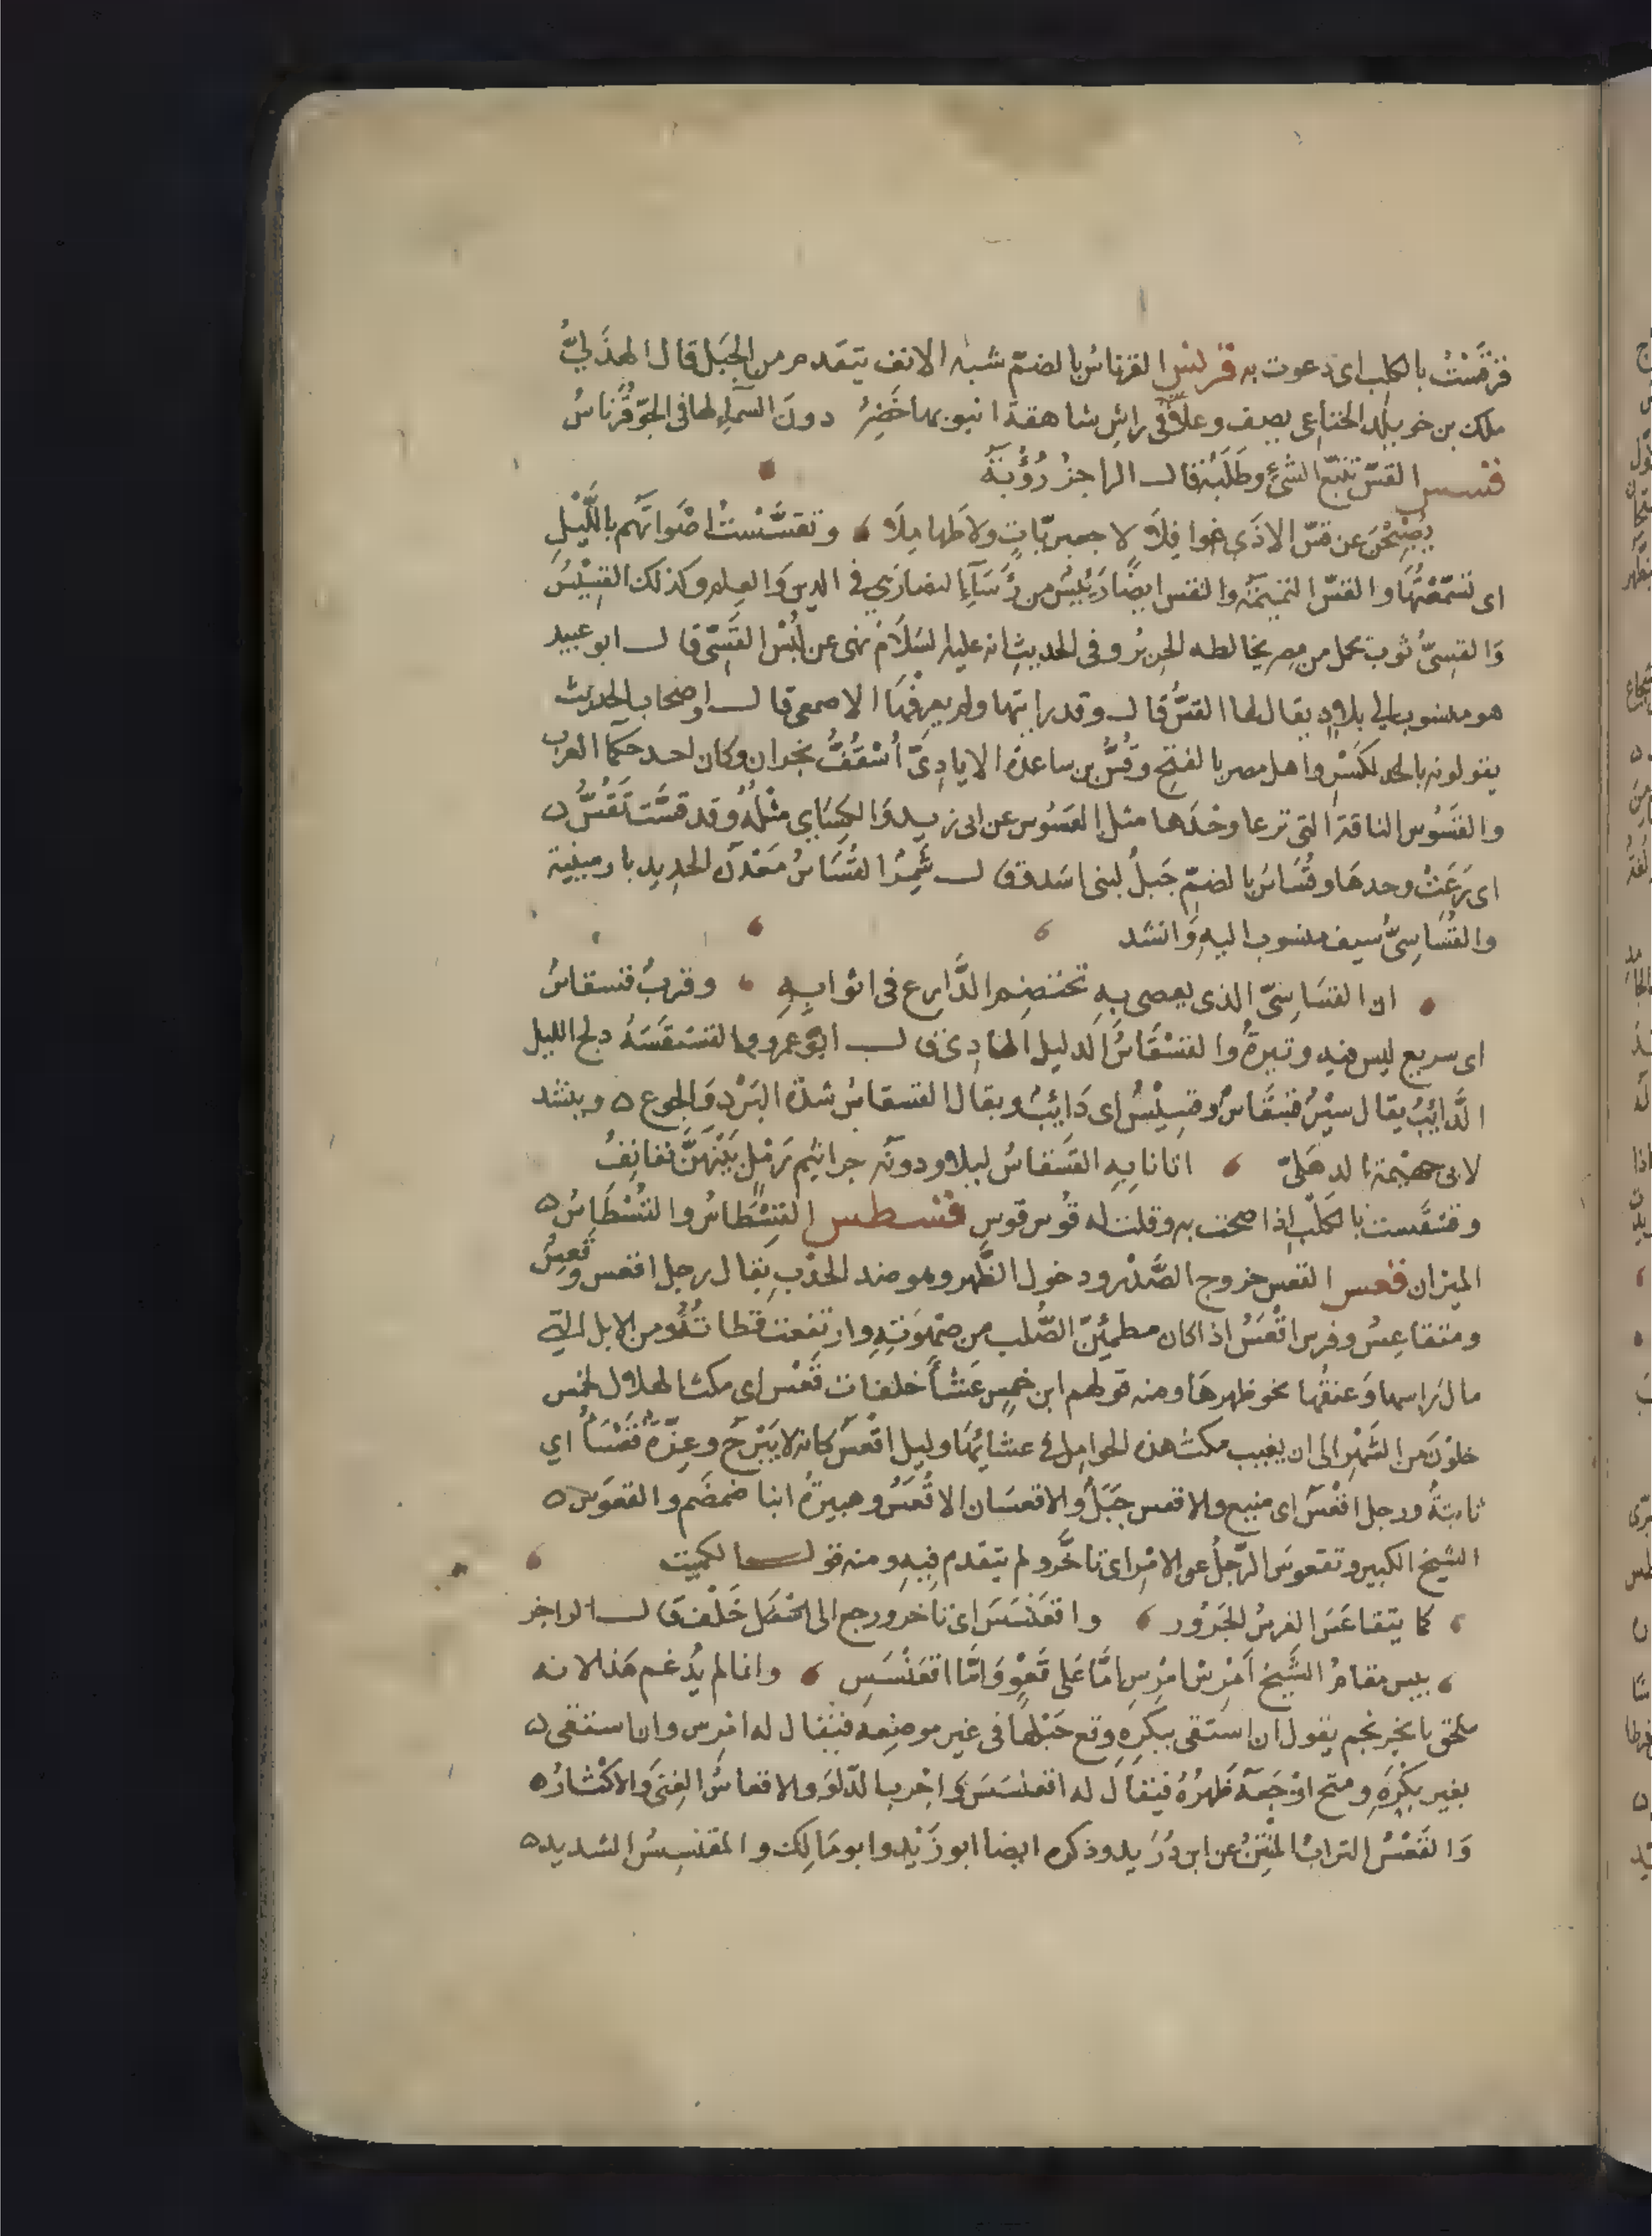 قرقست بالكلب اى دعوت به قرنس القرناسُ بالضمّ شبه الانف يتقدم من الجبَل قال الهذَليُّ
ملك بن خويلد الخناعى يصف وعلا فى راسِ شاهقة انبوبها خَضِرُ دونَ السمآءِ لها فى الجوّ قُرناسُ
قسس القسّ تتبّع الشئِ وطَلَبُه قالــ الراجز رُؤْبَةُ
يُصْبِحْنَ عن قسّ الاذَى غوافِلاَ لا جعبريّاتٍ ولا طهاملَا وتقسَّسْتُ اصْواتَهم بالليْلِ
اى تَسَمّعْتُهَا والقسّ النميمَة والقس ايضًا رَئِيسٌ من رُؤَسَآءِ النصارَى فى الدين وَالعِلم وكذلك القِسِّيْسُ
وَالقَسِىُّ ثوب يحمل من مِصر يخالطه الحرير وفى الحديث انه عليه السَلَام نهى عن لُبْسِ القَسِّىّ قالــ ابو عبيد
هو منسوب الى بلادٍ يقال لها القَسُّ قالــ وقد رايتها ولم يعرِفْهَا الاصمعى قالــ واصْحاب الحديث
يقولونه بالكَسْرِ واهل مصر بالفتحِ وقُسُّ بن ساعدة الايادِىّ اُسْقُفُّ نجران وكان احد حكمآ العرب
والقَسُوس الناقة التى ترعا وحْدَها مثل العَسُوس عن ابى زيد وَالكِسَاى مثْلُهُ وقد قسَّت تَقُسُّ
اى رَعَتْ وحدهَا وقُسَاسٌ بالضمّ جَبلٌ لبنى اسَد وقالــ شَمِرٌ القُسَاسُ مَعْدَن الحديد بارمينية
والقُسَاسِىُّ سيف منسوب اليهِ وَانشد
ان القسَاسِىّ الذى يعصى بِهِ تختصِم الدَّارع فى اثوابِهِ وقَربٌ قسقاسٌ
اى سريع ليس فيه وتيرةٌ والقسْقَاسُ الدليل الهادِى قالــ ابو عمرو والقسْقَسَةُ دلج الليل
الدَّائِبُ يقال سيْرٌ قسقَاسٌ وقسِيْسٌ اى دَائِبٌ ويقال القسقاسُ شدّة البَرْد وَالجوع وينشد
لابى جهيْمة الذهليّ اتانا بِهِ القَسقاسُ ليلا ودونه جراثيم رَمْلٍ بَيْنَهنَّ نفانِفُ
وقسْقَست بالكلْب اِذا صِحت به وقلت له قُوس قوس قسطس القِسْطَاسُ والقُسْطَاسُ
الميزان قعس القعس خروج الصَّدْر ودخول الظَّهر وهو ضد الحدَبِ يقال رجل اقعس وقَعِسٌ
ومتقاعِسٌ وفرس اقْعَسُ اذا كان مطمئِنّ الصُّلب من صَهْوَتِهِ وارتفعت قطاتُهُ ومن الابل التى
مالَ رَاسها وَعنقُها نحو ظهرهَا ومنه قولهم ابن خمسٍ عَشَآُ خلفات قُعْس اى مكث الهلال لخمس
خلوْنَ من الشَهْرِ الى ان يغيب مكث هذه الحوامِل فى عشائِهَا وليل اقْعَس كانه لا يَبْرحَ وعِزّةٌ قَعْسَآُ اى
ثابتةٌ ورجل اقْعسَ اى منيع والاقعس جَبَلٌ والاقعسَان الاقْعَسُ وهبيرةُ ابنا ضمضَم والقعوَس
الشيخ الكبير وتقعوسَ الرّجلُ عن الامْر اى تاخَّر ولم يتقدم فيهِ ومنه قولــ الكميت
كما يتقاعَسَ الفرسُ الجَرُور واقعَنْسَسَ اى تاخر ورجع الى خَلْف قالــ الراجز
بيس مقامُ الشَّيخ اَمْرِسْ امْرِسِ امَّا عَلى قَعْوٍ وَامَّا اقعَنْسَسِ وانما لم يُدغم هَذا لانه
ملحق باحْرنجم يقول ان استَقى ببَكْرةٍ وقع حَبْلُهَا فى غير موضِعه فيُقال له امْرس وان استقى
بغير بكْرَةٍ ومتح اوْجعَهُ ظَهرُهُ فيقال له اقعنْسَسْ وَاجْرب الدّلوَ والاقعاسُ الغِنَى وَالاكْثارُ
وَالقَعْسُ الترابُ المُنْتِنُ عن ابن دُرَيد وذكره ايضا ابو زَيْد وابو مَالِك والمقعَنسِسُ الشديد